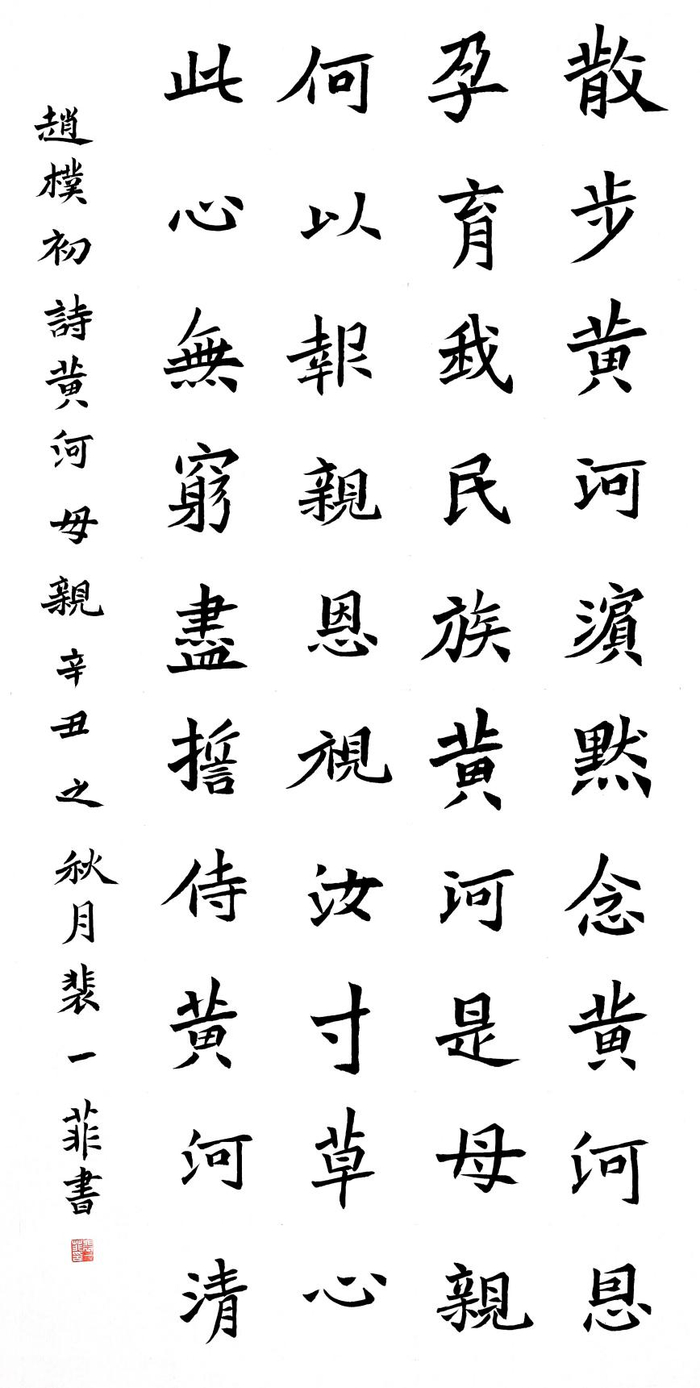 散步黄河濵默念黄河恩
孕育我民族黄河是母親
何以報親恩視汝寸草心
此心無窮盡誓侍黄河清
趙樸初詩黄河母親辛丑之秋月裴一菲書